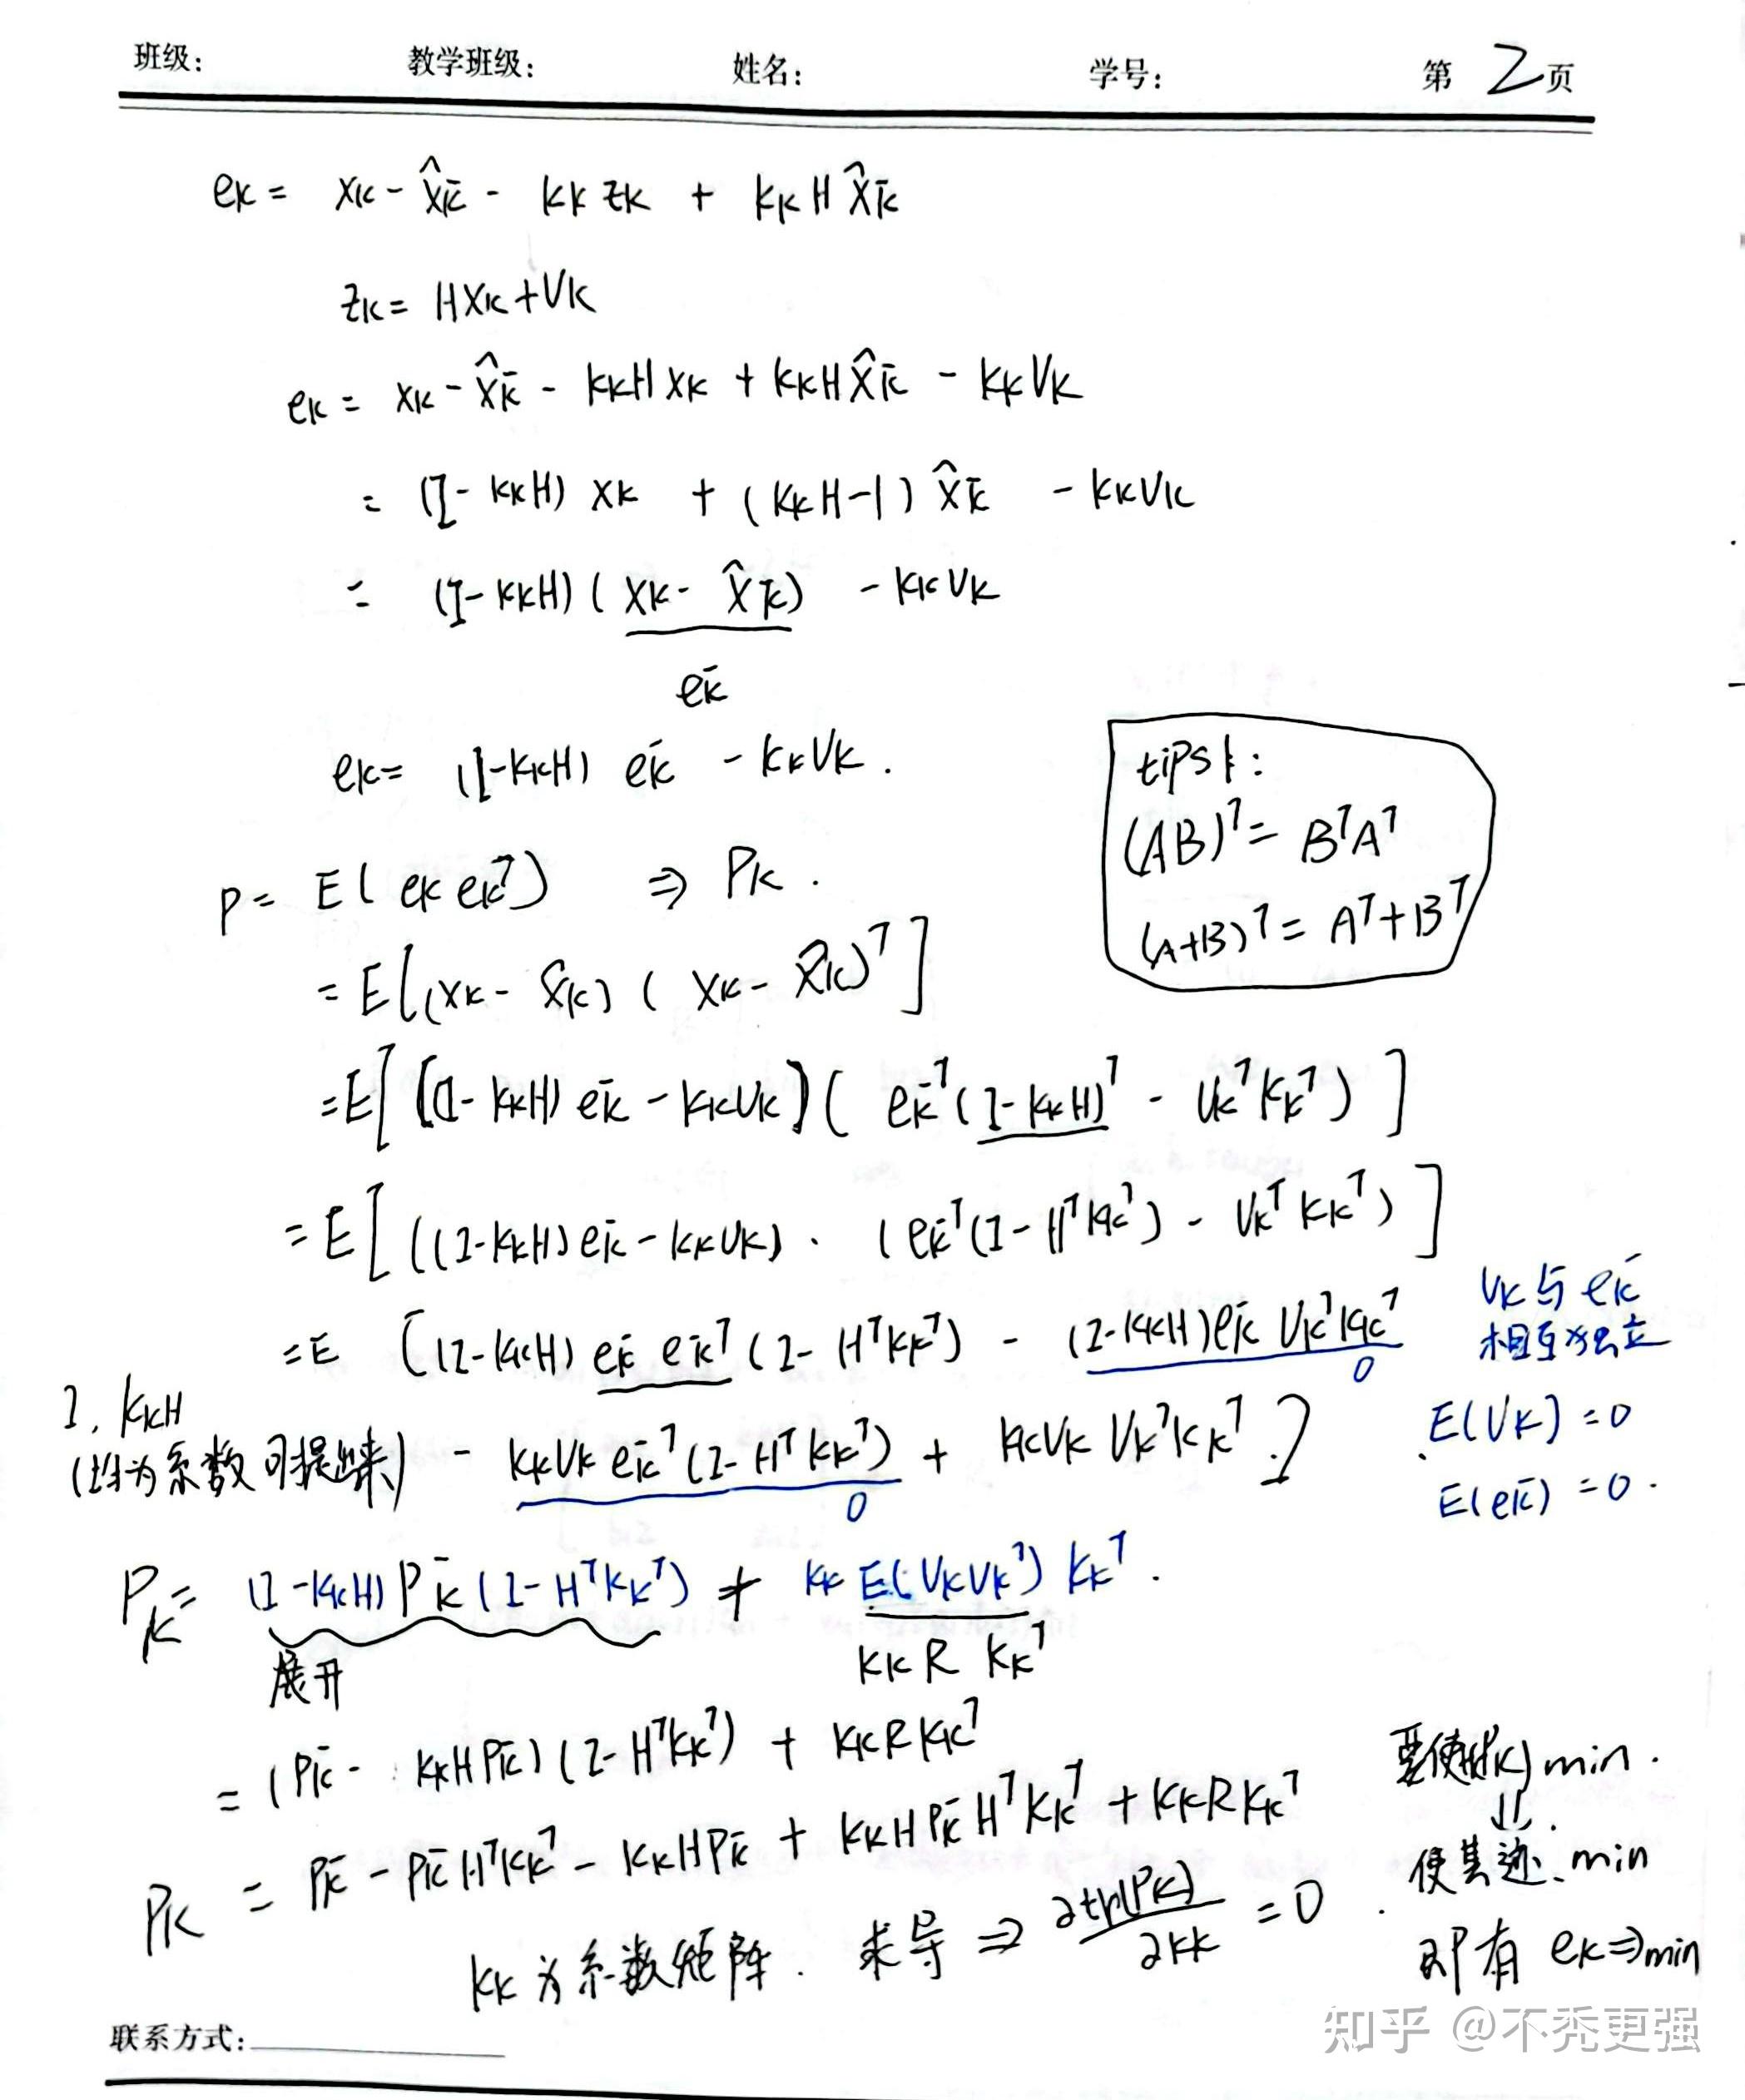 班级： 教学班级： 姓名： 学号： 第 2 页
eₖ = xₖ - x̂ₖ⁻ - Kₖ zₖ + Kₖ H x̂ₖ⁻
zₖ = Hxₖ + Vₖ
eₖ = xₖ - x̂ₖ⁻ - KₖH xₖ + KₖH x̂ₖ⁻ - KₖVₖ
= (I - KₖH) xₖ + (KₖH - I) x̂ₖ⁻ - KₖVₖ
= (I - KₖH)(xₖ - x̂ₖ⁻) - KₖVₖ
eₖ⁻
eₖ = (I - KₖH) eₖ⁻ - KₖVₖ.
tips 1:
(AB)ᵀ = BᵀAᵀ
(A+B)ᵀ = Aᵀ+Bᵀ
P = E(eₖ eₖᵀ) ⇒ Pₖ.
= E[(xₖ - x̂ₖ)(xₖ - x̂ₖ)ᵀ]
= E[((I - KₖH) eₖ⁻ - KₖVₖ)(eₖ⁻ᵀ(I - KₖH)ᵀ - VₖᵀKₖᵀ)]
= E[((I - KₖH)eₖ⁻ - KₖVₖ) · (eₖ⁻ᵀ(I - HᵀKₖᵀ) - VₖᵀKₖᵀ)]
= E [(I - KₖH) eₖ⁻ eₖ⁻ᵀ (I - HᵀKₖᵀ) - (I - KₖH)eₖ⁻ VₖᵀKₖᵀ
0
Vₖ与eₖ⁻
相互独立
I, KₖH
(均为系数可提出来)
- KₖVₖ eₖ⁻ᵀ(I - HᵀKₖᵀ) + KₖVₖ VₖᵀKₖᵀ.]
0
E(Vₖ) = 0
E(eₖ⁻) = 0.
Pₖ = (I - KₖH)Pₖ⁻(I - HᵀKₖᵀ) + Kₖ E(VₖVₖᵀ) Kₖᵀ.
展开
Kₖ R Kₖᵀ
= (Pₖ⁻ - KₖHPₖ⁻)(I - HᵀKₖᵀ) + KₖRKₖᵀ
Pₖ = Pₖ⁻ - Pₖ⁻HᵀKₖᵀ - KₖHPₖ⁻ + KₖHPₖ⁻HᵀKₖᵀ + KₖRKₖᵀ
要使 min.
⇓.
使其迹 min
即有 eₖ ⇒ min
Kₖ为系数矩阵. 求导 ⇒ ∂tr(Pₖ)/∂Kₖ = 0.
联系方式：
知乎 @不秃更强